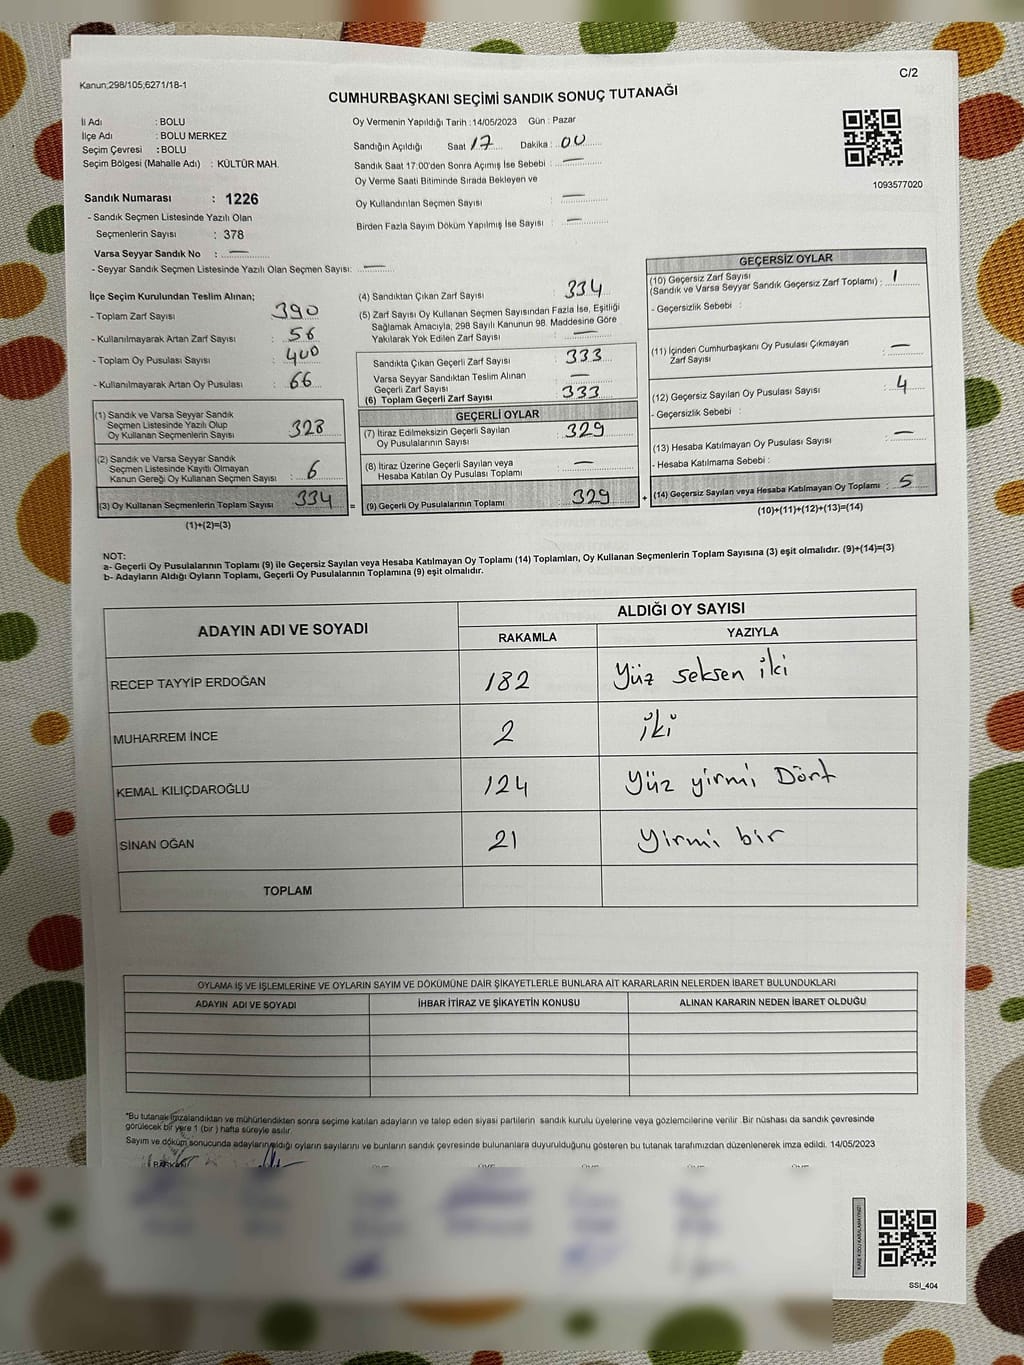 C/2
Kanun;298/105;6271/18-1
CUMHURBAŞKANI SEÇİMİ SANDIK SONUÇ TUTANAĞI
İl Adı : BOLU
İlçe Adı : BOLU MERKEZ
Seçim Çevresi : BOLU
Seçim Bölgesi (Mahalle Adı) : KÜLTÜR MAH.
Oy Vermenin Yapıldığı Tarih : 14/05/2023 Gün : Pazar
Sandığın Açıldığı Saat 17 Dakika : 00
Sandık Saat 17:00'den Sonra Açımış İse Sebebi : —
Oy Verme Saati Bitiminde Sırada Bekleyen ve
Oy Kullandırılan Seçmen Sayısı : —
Birden Fazla Sayım Döküm Yapılmış İse Sayısı : —
1093577020
Sandık Numarası : 1226
- Sandık Seçmen Listesinde Yazılı Olan
Seçmenlerin Sayısı : 378
Varsa Seyyar Sandık No : —
- Seyyar Sandık Seçmen Listesinde Yazılı Olan Seçmen Sayısı: —
İlçe Seçim Kurulundan Teslim Alınan;
- Toplam Zarf Sayısı : 390
- Kullanılmayarak Artan Zarf Sayısı : 56
- Toplam Oy Pusulası Sayısı : 400
- Kullanılmayarak Artan Oy Pusulası : 66
(1) Sandık ve Varsa Seyyar Sandık
Seçmen Listesinde Yazılı Olup
Oy Kullanan Seçmenlerin Sayısı : 328
(2) Sandık ve Varsa Seyyar Sandık
Seçmen Listesinde Kayıtlı Olmayan
Kanun Gereği Oy Kullanan Seçmen Sayısı : 6
(3) Oy Kullanan Seçmenlerin Toplam Sayısı : 334
(1)+(2)=(3)
(4) Sandıktan Çıkan Zarf Sayısı : 334
(5) Zarf Sayısı Oy Kullanan Seçmen Sayısından Fazla İse, Eşitliği
Sağlamak Amacıyla, 298 Sayılı Kanunun 98. Maddesine Göre
Yakılarak Yok Edilen Zarf Sayısı : —
Sandıkta Çıkan Geçerli Zarf Sayısı : 333
Varsa Seyyar Sandıktan Teslim Alınan
Geçerli Zarf Sayısı : —
(6) Toplam Geçerli Zarf Sayısı : 333
GEÇERLİ OYLAR
(7) İtiraz Edilmeksizin Geçerli Sayılan
Oy Pusulalarının Sayısı : 329
(8) İtiraz Üzerine Geçerli Sayılan veya
Hesaba Katılan Oy Pusulası Toplamı : —
= (9) Geçerli Oy Pusulalarının Toplamı : 329
GEÇERSİZ OYLAR
(10) Geçersiz Zarf Sayısı
(Sandık ve Varsa Seyyar Sandık Geçersiz Zarf Toplamı) : 1
- Geçersizlik Sebebi :
(11) İçinden Cumhurbaşkanı Oy Pusulası Çıkmayan
Zarf Sayısı : —
(12) Geçersiz Sayılan Oy Pusulası Sayısı : 4
- Geçersizlik Sebebi :
(13) Hesaba Katılmayan Oy Pusulası Sayısı : —
- Hesaba Katılmama Sebebi :
+ (14) Geçersiz Sayılan veya Hesaba Katılmayan Oy Toplamı : 5
(10)+(11)+(12)+(13)=(14)
NOT:
a- Geçerli Oy Pusulalarının Toplamı (9) ile Geçersiz Sayılan veya Hesaba Katılmayan Oy Toplamı (14) Toplamları, Oy Kullanan Seçmenlerin Toplam Sayısına (3) eşit olmalıdır. (9)+(14)=(3)
b- Adayların Aldığı Oyların Toplamı, Geçerli Oy Pusulalarının Toplamına (9) eşit olmalıdır.
ADAYIN ADI VE SOYADI ALDIĞI OY SAYISI
RAKAMLA YAZIYLA
RECEP TAYYİP ERDOĞAN 182 Yüz seksen iki
MUHARREM İNCE 2 iki
KEMAL KILIÇDAROĞLU 124 Yüz yirmi Dört
SİNAN OĞAN 21 Yirmi bir
TOPLAM
OYLAMA İŞ VE İŞLEMLERİNE VE OYLARIN SAYIM VE DÖKÜMÜNE DAİR ŞİKAYETLERLE BUNLARA AİT KARARLARIN NELERDEN İBARET BULUNDUKLARI
ADAYIN ADI VE SOYADI İHBAR İTİRAZ VE ŞİKAYETİN KONUSU ALINAN KARARIN NEDEN İBARET OLDUĞU
"Bu tutanak imzalandıktan ve mühürlendikten sonra seçime katılan adayların ve talep eden siyasi partilerin sandık kurulu üyelerine veya gözlemcilerine verilir .Bir nüshası da sandık çevresinde
görülecek bir yere 1 (bir ) hafta süreyle asılır.
Sayım ve döküm sonucunda adayların aldığı oyların sayılarını ve bunların sandık çevresinde bulunanlara duyurulduğunu gösteren bu tutanak tarafımızdan düzenlenerek imza edildi. 14/05/2023
BAŞKAN
SSI_404